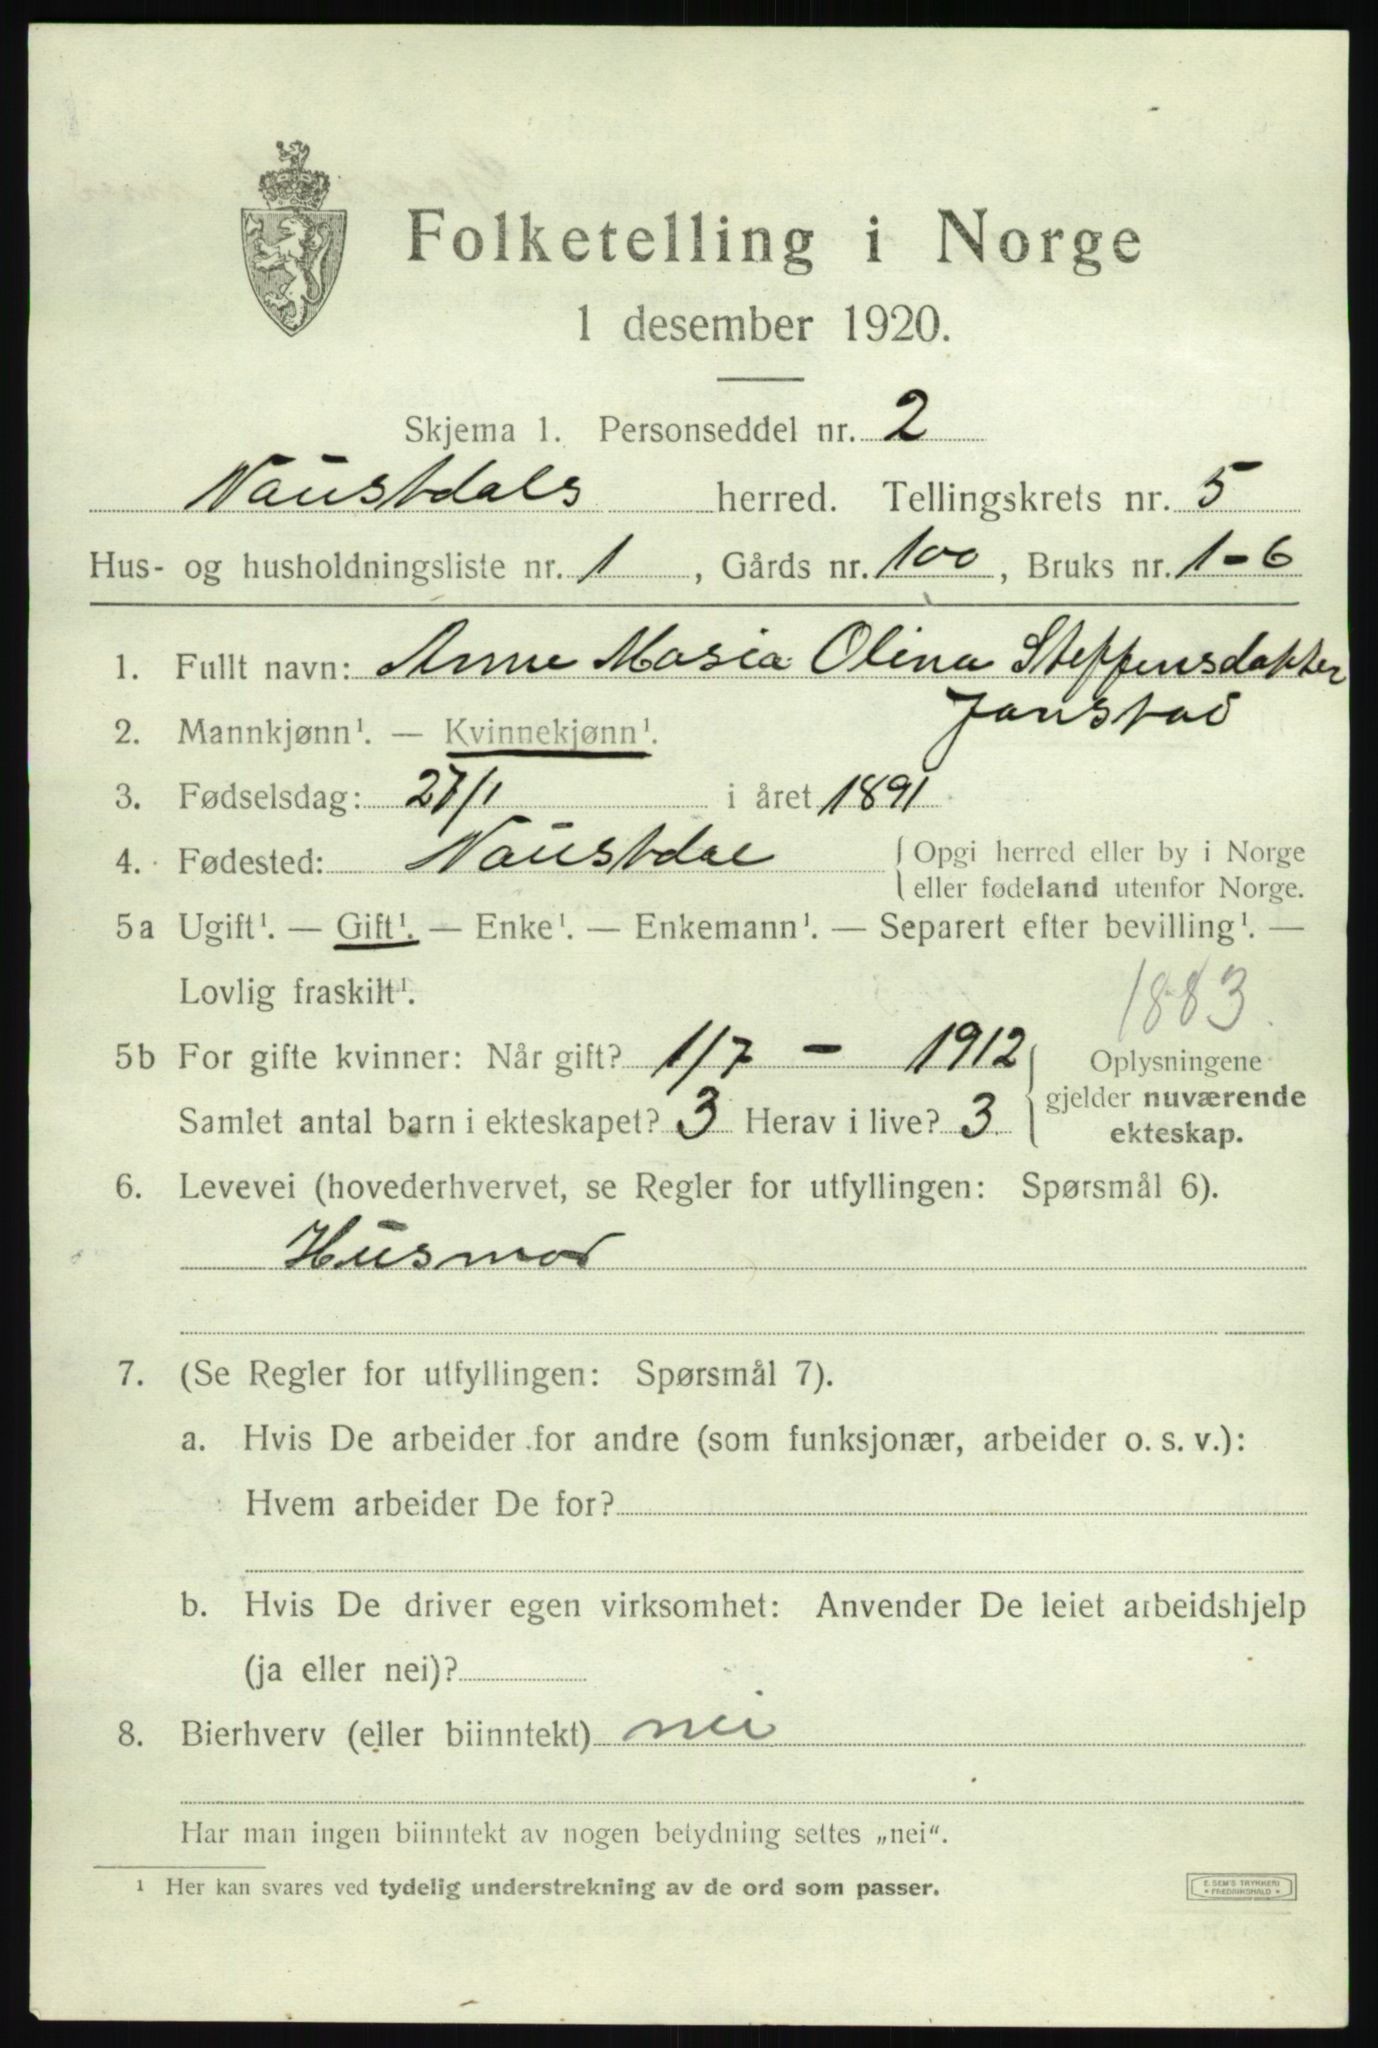 Folketelling i Norge
1 desember 1920.
Skjema 1. Personseddel nr. 2
Naustdals herred. Tellingskrets nr. 5
Hus- og husholdningsliste nr. 1, Gårds nr. 100, Bruks nr. 1-6
1. Fullt navn: Anne Maria Olina Steffensdatter
Janstad
2. Mannkjønn¹. — Kvinnekjønn¹.
3. Fødselsdag: 27/1 i året 1891
4. Fødested: Naustdal { Opgi herred eller by i Norge
eller fødeland utenfor Norge.
5a Ugift¹. — Gift¹. — Enke¹. — Enkemann¹. — Separert efter bevilling¹. —
Lovlig fraskilt¹.
1883.
5b For gifte kvinner: Når gift? 1/7 - 1912 { Oplysningene
gjelder nuværende
Samlet antal barn i ekteskapet? 3 Herav i live? 3. ekteskap.
6. Levevei (hovederhvervet, se Regler for utfyllingen: Spørsmål 6).
Husmor
7. (Se Regler for utfyllingen: Spørsmål 7).
a. Hvis De arbeider for andre (som funksjonær, arbeider o. s. v.):
Hvem arbeider De for?
b. Hvis De driver egen virksomhet: Anvender De leiet arbeidshjelp
(ja eller nei)?
8. Bierhverv (eller biinntekt) nei
Har man ingen biinntekt av nogen betydning settes „nei".
¹ Her kan svares ved tydelig understrekning av de ord som passer.
E. SEM'S TRYKKERI
* FREDRIKSHALD *